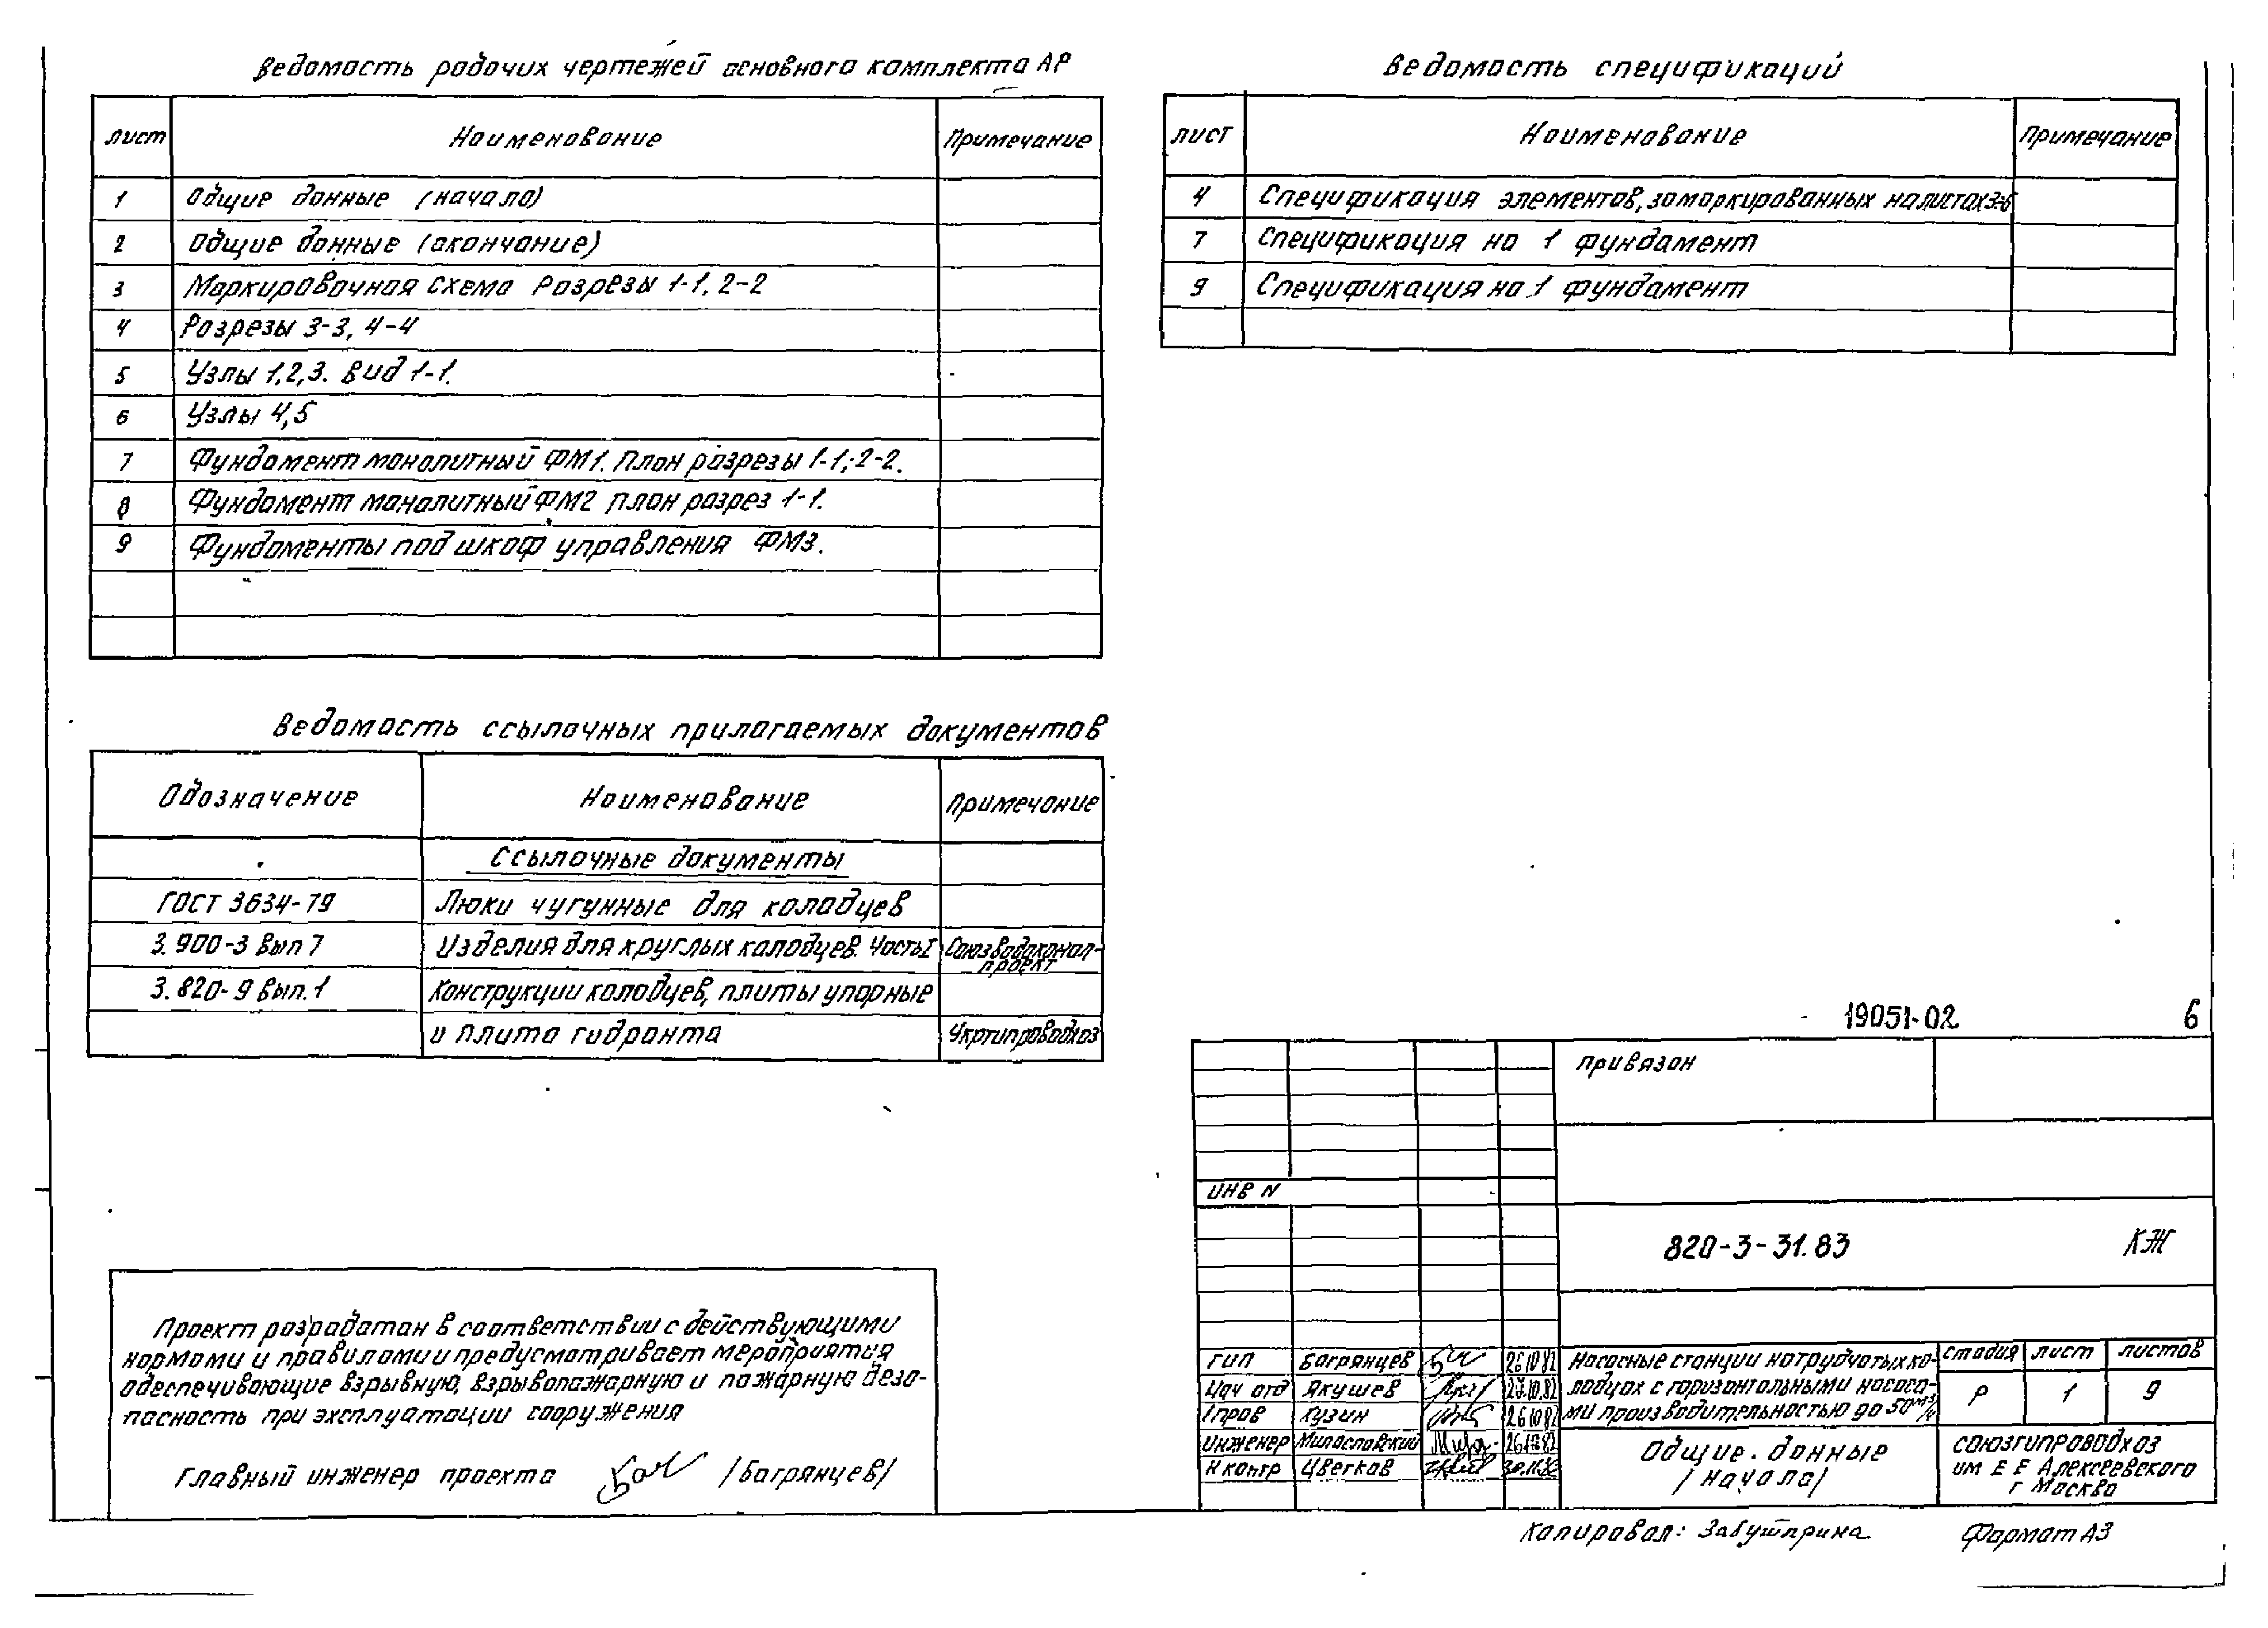 Ведомость рабочих чертежей основного комплекта АР
лист Наименование Примечание
1 Общие данные (начало)
2 Общие данные (окончание)
3 Маркировочная схема Разрезы 1-1, 2-2
4 Разрезы 3-3, 4-4
5 Узлы 1,2,3. Вид 1-1.
6 Узлы 4,5
7 Фундамент монолитный ФМ1. План разрезы 1-1; 2-2.
8 Фундамент монолитный ФМ2 план разрез 1-1.
9 Фундаменты под шкаф управления ФМ3.
Ведомость спецификаций
лист Наименование Примечание
4 Спецификация элементов, замаркированных на листах 3-6
7 Спецификация на 1 фундамент
9 Спецификация на 1 фундамент
Ведомость ссылочных прилагаемых документов
Обозначение Наименование Примечание
Ссылочные документы
ГОСТ 3634-79 Люки чугунные для колодцев
3.900-3 Вып 7 Изделия для круглых колодцев. Часть I Союзводоканал-
проект
3.820-9 Вып.1 Конструкции колодцев, плиты упорные
и плита гидранта Укргипроводхоз
Проект разработан в соответствии с действующими
нормами и правилами и предусматривает мероприятия
обеспечивающие взрывную, взрывопожарную и пожарную безо-
пасность при эксплуатации сооружения
Главный инженер проекта /Багрянцев/
19051-02 6
привязан
инв N
820-3-31.83 КЖ
ГИП Багрянцев 26.10.82
Нач отд Якушев 27.10.82
Гл.рав Кузин 26.10.82
Инженер Милославский 26.10.82
Н контр Цветков
Насосные станции на трубчатых ко-
лодцах с горизонтальными насоса-
ми производительностью до 50 м³/ч
стадия лист листов
Р 1 9
Общие. данные
/начало/
союзгипроводхоз
им Е Е Алексеевского
г Москва
Копировал: Формат А3